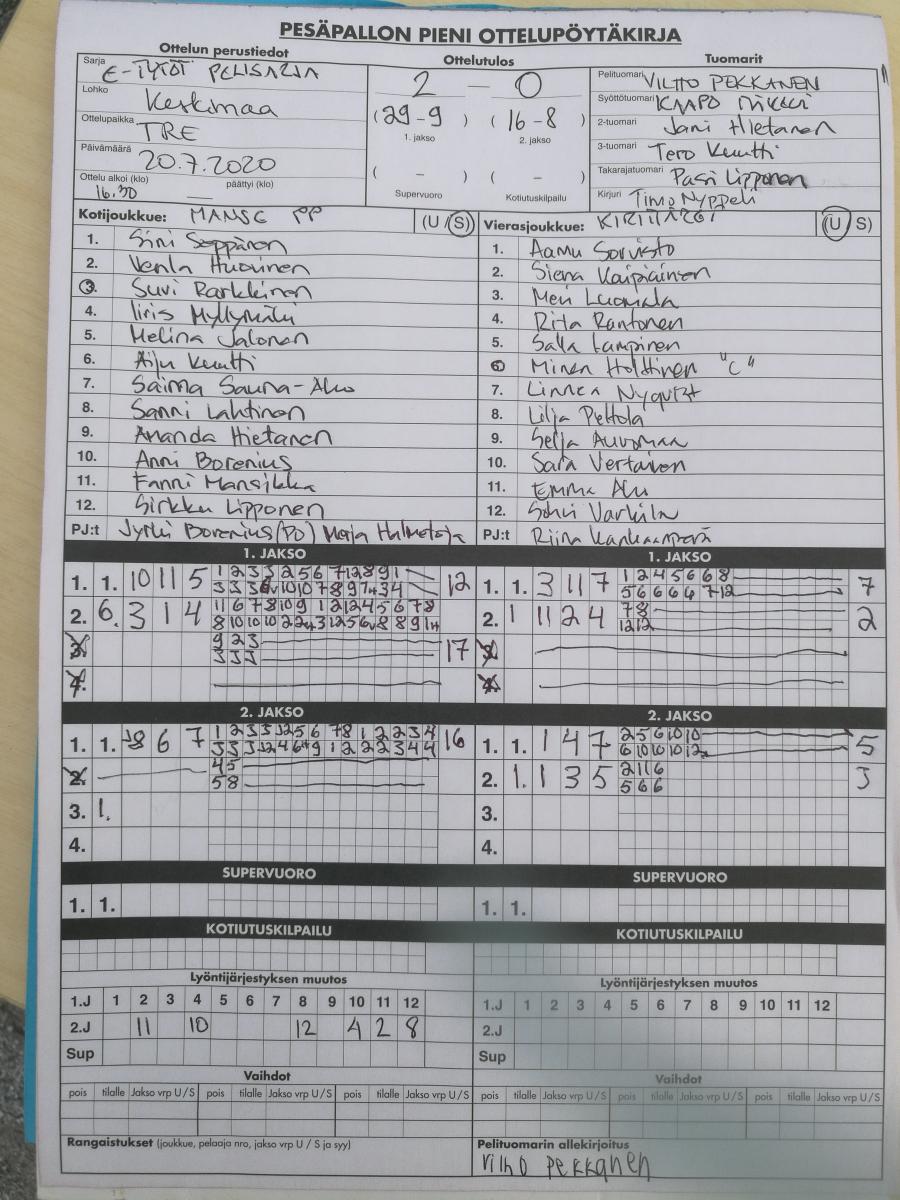 PESÄPALLON PIENI OTTELUPÖYTÄKIRJA
Ottelun perustiedot
Ottelutulos
Tuomarit
Sarja E-TYTÖT PELISARJA
Lohko Keskimaa
Ottelupaikka TRE
Päivämäärä 20.7.2020
Ottelu alkoi (klo) päättyi (klo)
16.30 —
2 — 0
(29-9) (16-8)
1. jakso 2. jakso
( - ) ( - )
Supervuoro Kotiutuskilpailu
Pelituomari VILHO PEKKANEN
Syöttötuomari KAAPO
2-tuomari Jani Hietanen
3-tuomari Tero Kuutti
Takarajatuomari Pasi Lipponen
Kirjuri Timo Nyppeli
Kotijoukkue: MANSE PP (U / S)
1. Sini Seppänen
2. Venla Huovinen
3. Suvi Parkkinen
4. Iiris Myllymäki
5. Melina Jalonen
6. Aiju Kuutti
7. Saima Sauna-Aho
8. Sanni Lahtinen
9. Amanda Hietanen
10. Anni Borenius
11. Fanni Mansikka
12. Sirkku Lipponen
PJ:t Jyrki Borenius (PJ) Merja Halmetoja
Vierasjoukkue: KIRITTÄRET (U / S)
1. Aamu Sorvisto
2. Siena Kaipiainen
3. Meri Luomala
4. Rita Rantonen
5. Salla Lampinen
6. Minea Holttinen "C"
7. Linnea Nyqvist
8. Lilja Peltola
9. Selja Auvoman
10. Sara Vertainen
11. Emma Aho
12. Varkila
PJ:t Riina Kankaanperä
1. JAKSO
1. 1. 10 11 5 12
2. 6. 3 1 4
9 2 3
3 3 3 17
3.
4.
1. JAKSO
1. 1. 3 11 7 1 2 4 5 6 6 8 7
5 6 6 6 6 7 12
2. 1 11 2 4 7 8 2
12 12
3.
4.
2. JAKSO
1. 1. 8 6 7 16
2. 4 5
5 8
3. 1.
4.
2. JAKSO
1. 1. 1 4 7 2 5 6 10 10 5
6 10 10 10 12
2. 1. 1 3 5 2 11 6 3
5 6 6
3.
4.
SUPERVUORO
1. 1.
SUPERVUORO
1. 1.
KOTIUTUSKILPAILU
KOTIUTUSKILPAILU
Lyöntijärjestyksen muutos
1.J 1 2 3 4 5 6 7 8 9 10 11 12
2.J 11 10 12 4 2 8
Sup
Lyöntijärjestyksen muutos
1.J 1 2 3 4 5 6 7 8 9 10 11 12
2.J
Sup
Vaihdot
pois tilalle Jakso vrp U / S pois tilalle Jakso vrp U / S pois tilalle Jakso vrp U / S
Vaihdot
pois tilalle Jakso vrp U / S pois tilalle Jakso vrp U / S pois tilalle Jakso vrp U / S
Rangaistukset (joukkue, pelaaja nro, jakso vrp U / S ja syy)
Pelituomarin allekirjoitus
Vilho Pekkanen